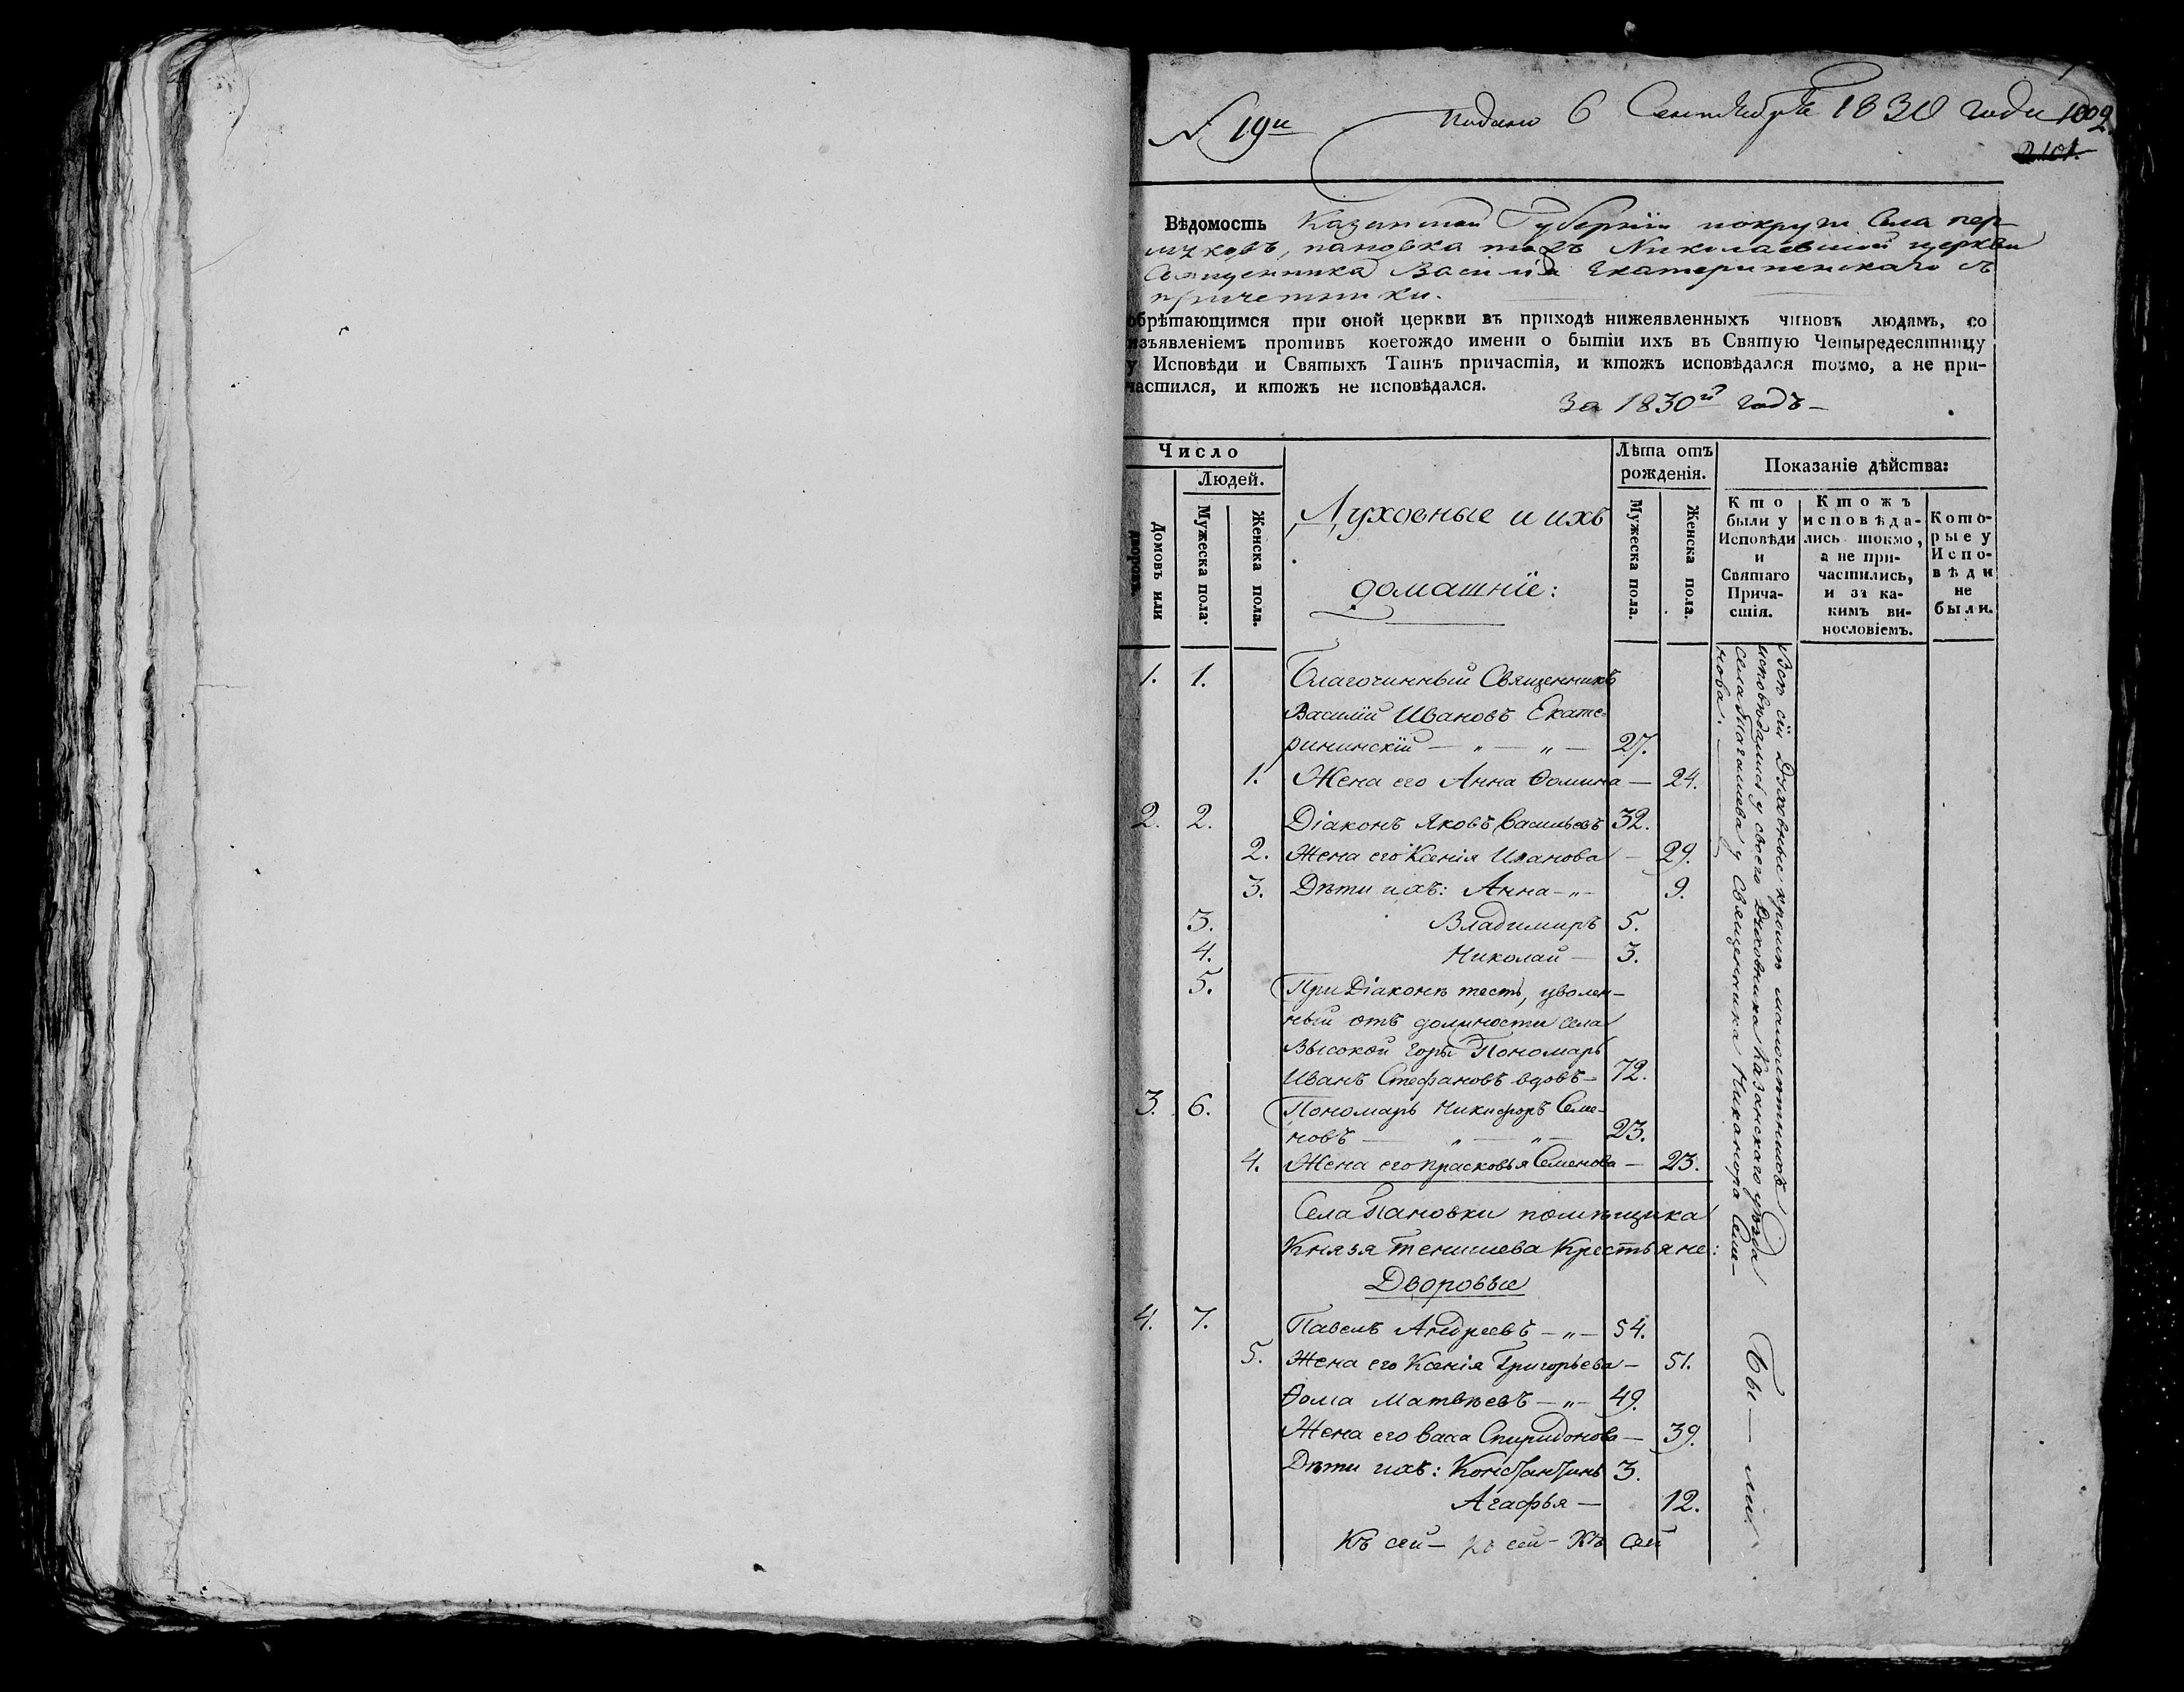 N 19й подано 6 Сентября 1830 года 1002
2101.
Вѣдомость Казанской Губернии и округи Села пер-
мяковъ, пановка тожъ Николаевской церкви
Священника Василія Екатерининскаго съ
причетники.
обрѣтающимся при оной церкви въ приходѣ нижеявленныхъ чиновъ людямъ, со
изъявленіемъ противъ коегождо имени о бытіи ихъ въ Святую Четыредесятницу
у Исповѣди и Святыхъ Таинъ причастія, и ктожъ исповѣдался токмо, а не при-
частился, и ктожъ не исповѣдался.
За 1830й Годъ
Число
Людей.
Домовъ или дворовъ.
Мужеска пола.
Женска пола.
Духовные и ихъ
домашніе:
Лѣта отъ
рожденія.
Мужеска пола.
Женска пола.
Показаніе дѣйства:
Кто
были у
Исповѣди
и
Святаго
Прича-
стія.
Ктожъ
исповѣда-
лись токмо,
а не при-
частились,
и за ка-
кимъ ви-
нословіемъ.
Кото-
рые у
Испо-
вѣди
не
были.
1. 1. Благочинный Священникъ
Василій Ивановъ Екате-
рининскій — „ — „ — 27.
1. Жена его Анна Ѳомина — 24.
2. 2. Діаконъ Яковъ Васильевъ 32.
2. Жена его Ксенія Иванова — 29.
3. Дѣти ихъ: Анна — „ — 9.
3. Владимиръ 5.
4. Николай — 3.
5. При Діаконѣ тесть, уволен-
ный отъ должности села
Высокой Горы Пономарь
Иванъ Стефановъ вдовъ — 72.
3. 6. Пономарь Никифоръ Семе-
новъ — „ — „ — 23.
4. Жена его Прасковья Семенова — 23.
Села Пановки помѣщика
Князя Тенишева Крестьяне:
Дворовые
4. 7. Павелъ Андреевъ — „ — 54.
5. Жена его Ксенія Григорьева — 51.
Ѳома Матвѣевъ — „ — 49.
Жена его Васса Спиридонова — 39.
Дѣти ихъ: Константинъ 3.
Агафья — 12.
Къ сей — къ сей — Къ сей
Всѣ сіи Духовные кромѣ малолѣтнихъ
исповѣдались у своего Духовника Казанскаго уѣзда
села у Священника Никанора Семе-
нова.
Бы — ли.